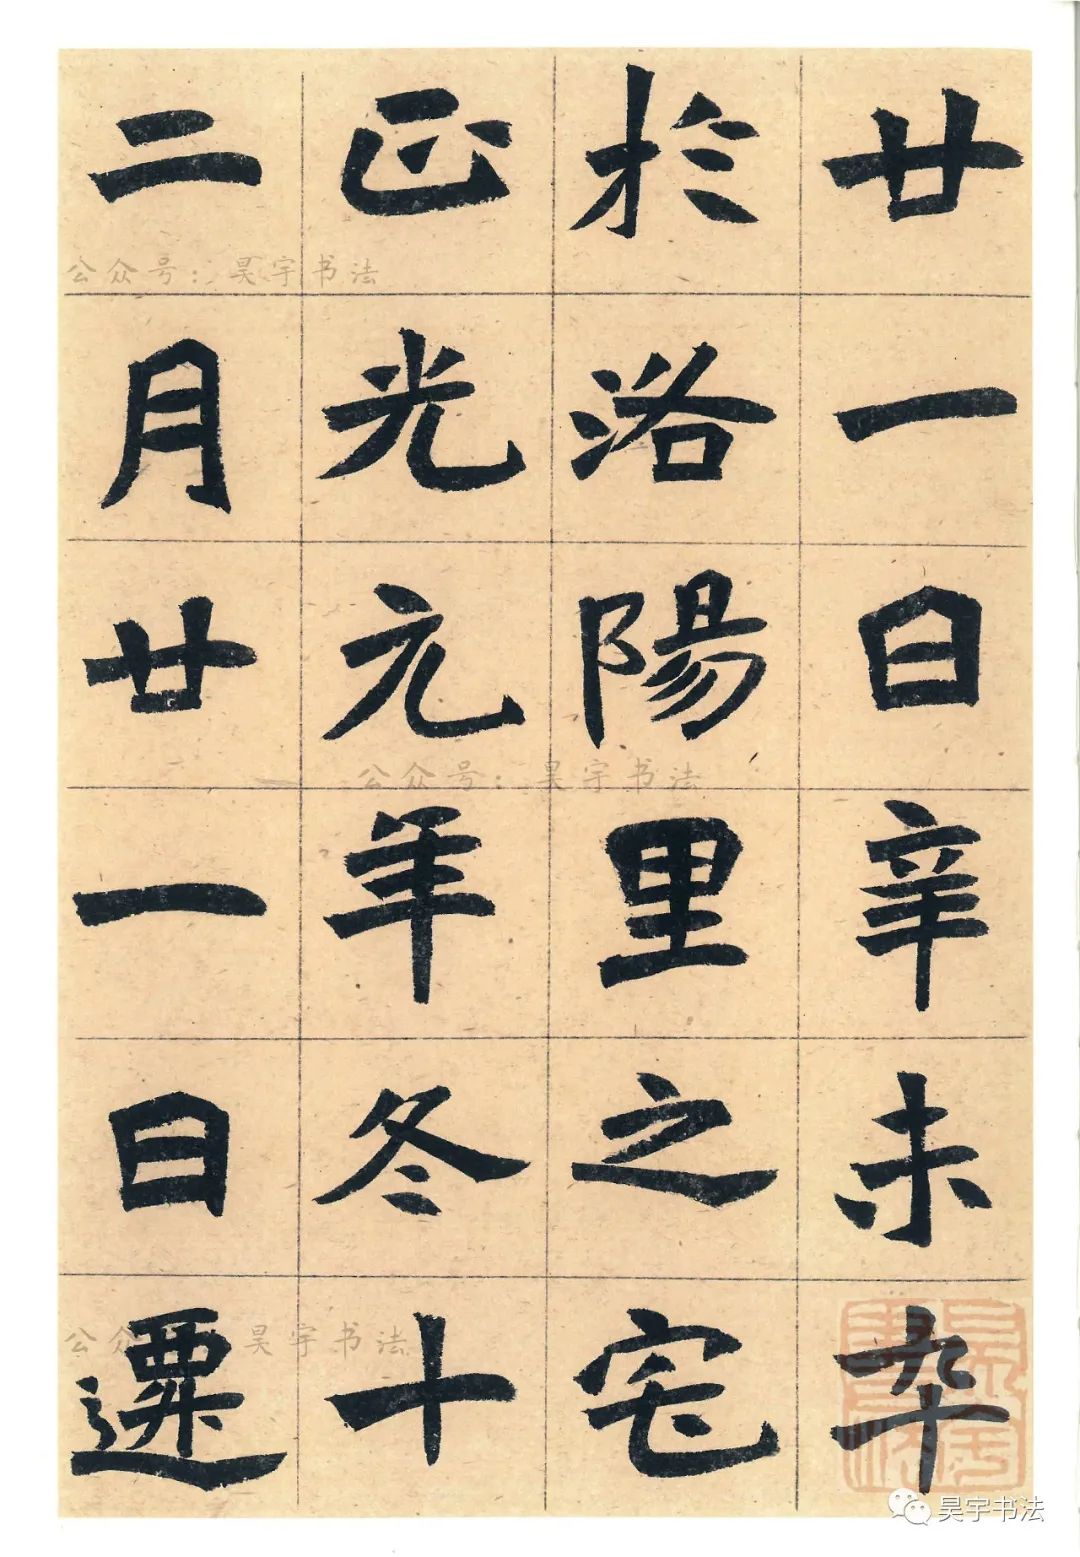 廿一日辛未卆
於洛陽里之宅
正光元年冬十
二月廿一日遷
公众号：昊宇书法
公众号：昊宇书法
公众 昊宇书法
昊宇书法